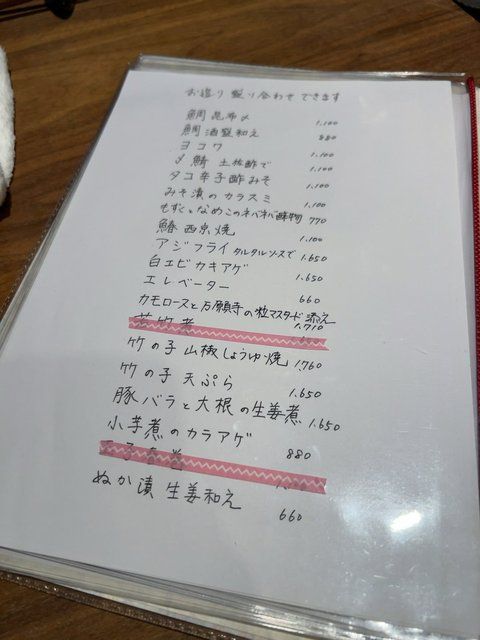 お造り盛り合わせできます
鯛昆布〆 1,100
鯛酒盗和え 880
ヨコワ 1,100
〆鯖 土佐酢で 1,100
タコ辛子酢みそ 1,100
みそ漬のカラスミ 1,100
もずくとなめこのネバネバ酢物 770
鰆 西京焼 1,100
アジフライ タルタルソースで 1,650
白エビカキアゲ 1,650
エレベーター 660
カモロースと万願寺の粒マスタード添え 1,710
若竹煮
竹の子 山椒しょうゆ焼 1,760
竹の子 天ぷら 1,650
豚バラと大根の生姜煮 1,650
小芋煮のカラアゲ 880
ぬか漬 生姜和え 660